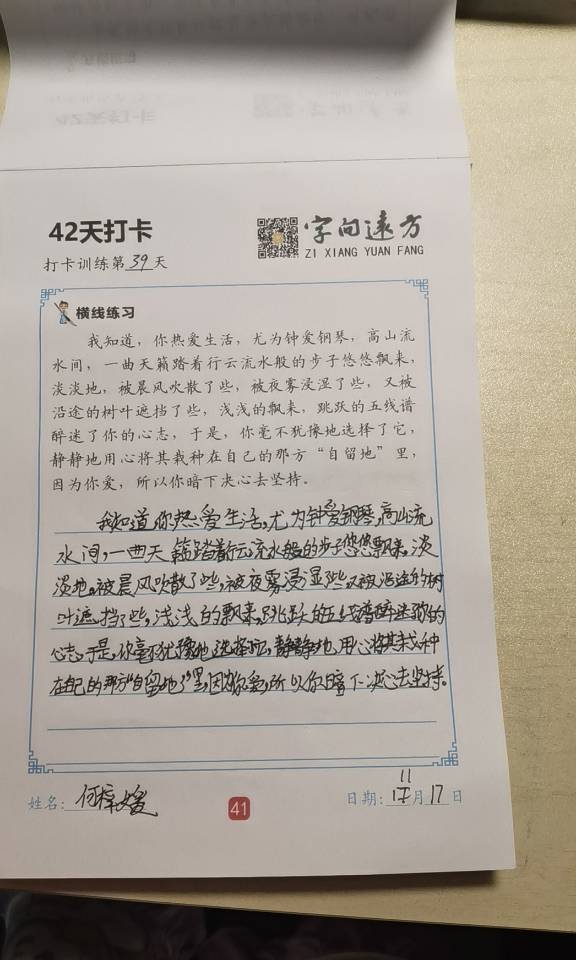 42天打卡
字向远方
ZI XIANG YUAN FANG
打卡训练第39天
横线练习
我知道，你热爱生活，尤为钟爱钢琴，高山流
水间，一曲天籁踏着行云流水般的步子悠悠飘来，
淡淡地，被晨风吹散了些，被夜雾浸湿了些，又被
沿途的树叶遮挡了些，浅浅的飘来，跳跃的五线谱
醉迷了你的心志，于是，你毫不犹豫地选择了它，
静静地用心将其栽种在自己的那方“自留地”里，
因为你爱，所以你暗下决心去坚持。
我知道，你热爱生活，尤为钟爱钢琴，高山流
水间，一曲天籁踏着行云流水般的步子悠悠飘来，淡
淡地，被晨风吹散了些，被夜雾浸湿了些，又被沿途的树
叶遮挡了些，浅浅的飘来，跳跃的五线谱醉迷了你的
心志，于是，你毫不犹豫地选择了它，静静地，用心将其栽种
在自己的那方“自留地”里，因为你爱，所以你暗下决心去坚持。
姓名：何梓媛
41
日期：11月17日